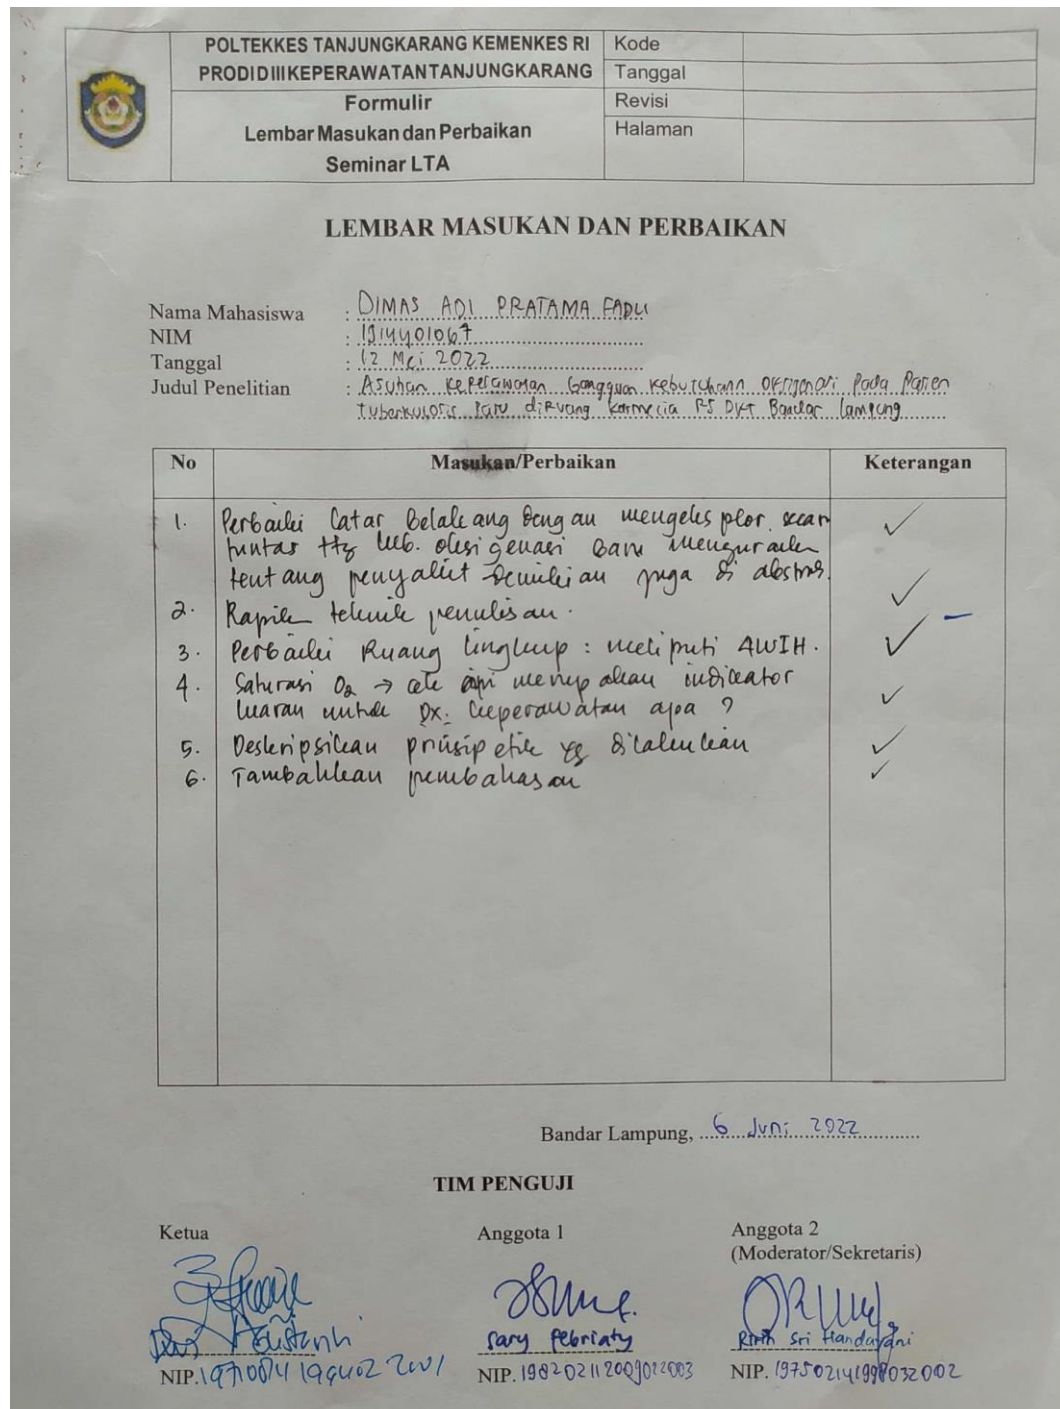 POLTEKKES TANJUNGKARANG KEMENKES RI
PRODI DIII KEPERAWATAN TANJUNGKARANG
Formulir
Lembar Masukan dan Perbaikan
Seminar LTA
Kode
Tanggal
Revisi
Halaman
LEMBAR MASUKAN DAN PERBAIKAN
Nama Mahasiswa : DIMAS ADI PRATAMA FADLI
NIM : 1914401067
Tanggal : 12 Mei 2022
Judul Penelitian : Asuhan Keperawatan Gangguan Kebutuhann Oksigenasi Pada Pasien
Tuberkulosis Paru diRuang RS DKT Bandar Lampung
No Masukan/Perbaikan Keterangan
1. Perbaiki Latar Belakang dengan mengeksplor secara
tuntas ttg keb. oksigenasi baru menguraikan
tentang penyakit demikian juga di abstrak.
2. Rapikan teknik penulisan.
3. Perbaiki Ruang lingkup : meliputi 4W1H.
4. Saturasi O2 → merupakan indikator
luaran untuk Dx. Keperawatan apa ?
5. Deskripsikan prinsip etik yg dilakukan
6. Tambahkan pembahasan
Bandar Lampung, 6 Juni 2022
TIM PENGUJI
Ketua
Anggota 1
Anggota 2
(Moderator/Sekretaris)
Sary Febriaty
Ririn Sri Handayani
NIP.
NIP. 198202112009022003
NIP. 197502141998032002